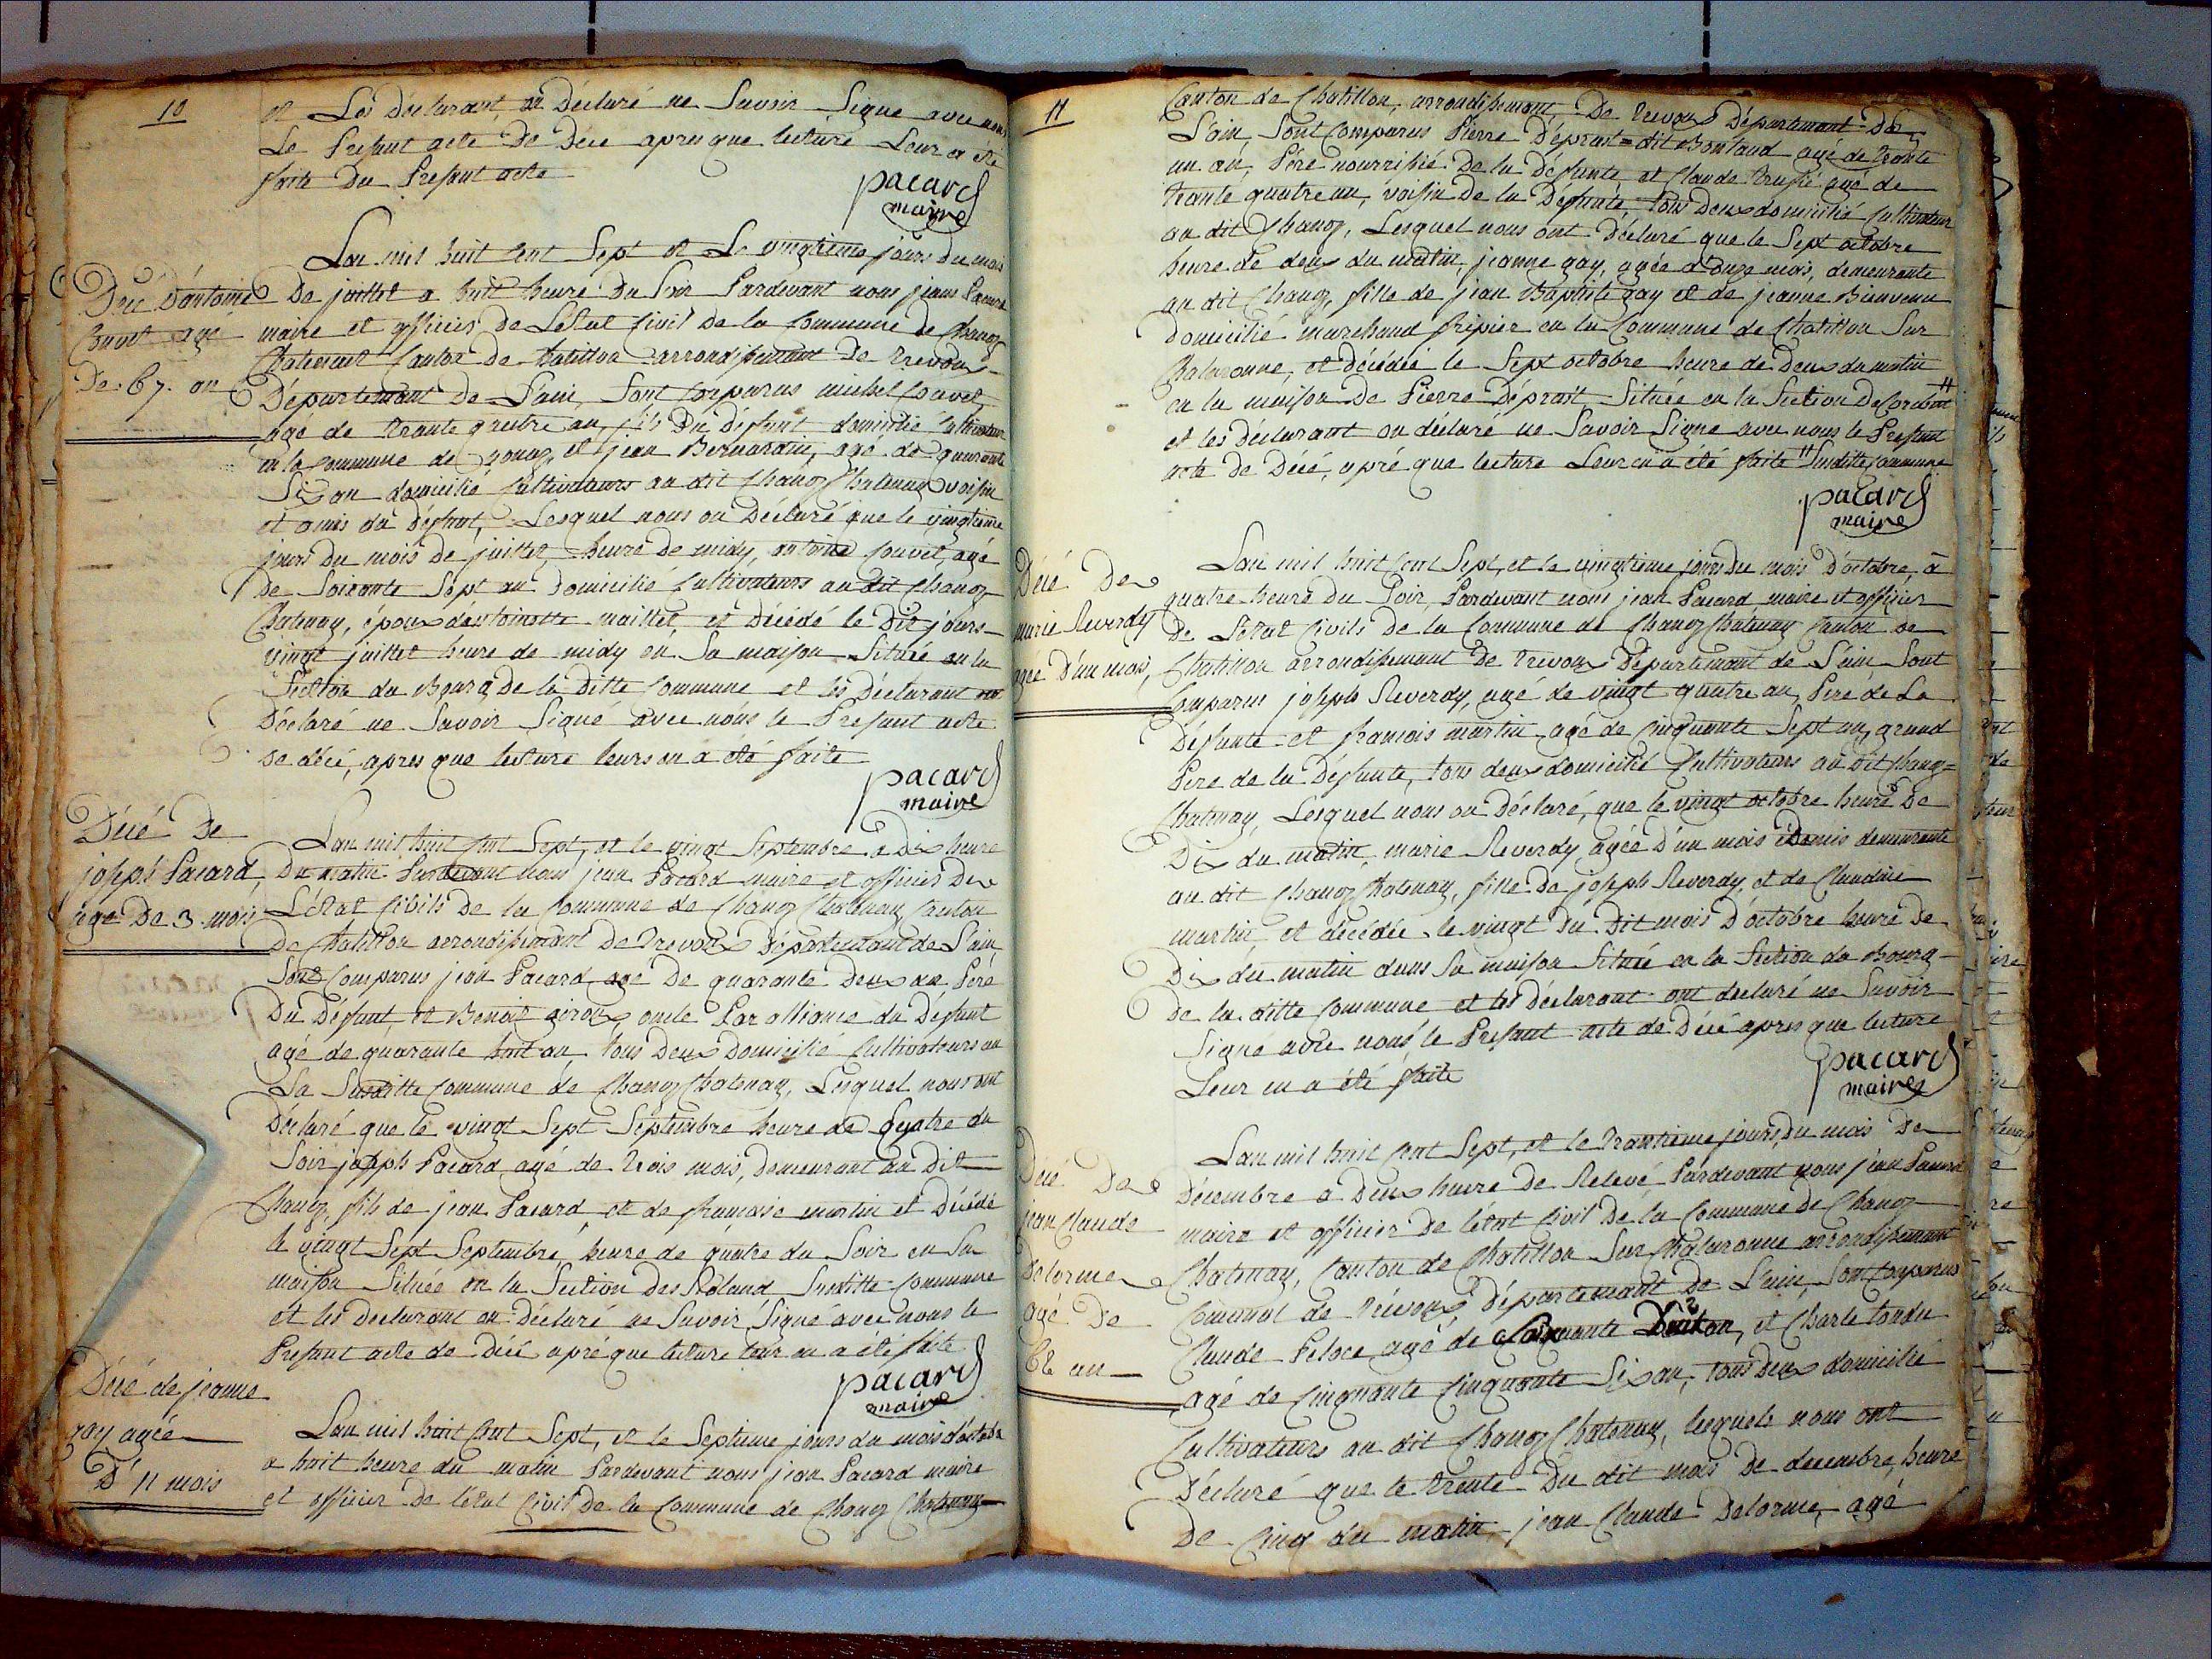 10
et Les déclarant on Déclaré ne Savoir Signe avec nous
Le Present acte De Décé apres que lecture Leur a été
faite Du Present acte
pacard
maire
Décé D'antoine
Couvet agé
De 67 an
Lan mil huit Cent Sept et Le vingtieme jours du mois
De juillet a huit heure Du Soir Pardevant nous jean Pacard
maire et officier de Letat Civil de la Commune de Chanoz
Chatenait Canton de Chatillon arrondissement De Trevoux
Département de Lain, Sont Comparus michel Couvet,
agé de trante quatre an, fils Du défunt domicilié Cultivateur
en la Commune de et jean Bernardin, agé de quarante
Six an domicilié Cultivateurs au dit Chanoz Chatenay voisin
et amis du défunt, Lesquel nous on Déclaré que le vingtieme
jours du mois de juillet, heure de midy, antoine Couvet, agé
de Soixante Sept an Domicilié Cultivateurs au dit Chanoz
Chatenay, époux d'antoinette maillet, et décédé le Dit jours
vingt juillet heure de midy en Sa maison Située en la
Section du Bourg de la ditte Commune et les Déclarant on
Déclaré ne Savoir Signé avec nous le Present acte
de décé, apres que lecture leurs en a été faite
pacard
maire
Décé De
joseph Pacard,
age De 3 mois
Lan mil huit Cent Sept, et le vingt Septembre à Dix heure
Du matin Pardevant nous jean Pacard maire et officier De
L'état Civils de la Commune de Chanoz Chatenay Canton
De Chatillon arrondissement De Trevoux Département de Lain,
Sont Comparus jean Pacard age De quarante Deux an Peré
Du Défunt, et Benoit giroux, oncle Par alliance du Défunt
agé de quarante huit an tous Deux Domicilié Cultivateurs en
La Susditte Commune de Chanoz Chatenay, Lesquel nous ont
Déclaré que le vingt Sept Septembre heure de quatre du
Soir joseph Pacard agé de trois mois, demeurant au Dit
Chanoz, fils de jean Pacard et de francoise martin et Décédé
le vingt Sept Septembre, heure de quatre du Soir en Sa
maison Située en la Section des Roland Susditte Commune
et les declarant on Déclaré ne Savoir Signé avec nous le
Present acte de Décé apré que lecture leur en a été faite
pacard
maire
Décé de jeanne
gay agée
D' 11 mois
Lan mil huit Cent Sept, et le Septieme jours du mois d'octobre
a huit heure du matin Pardevant nous jean Pacard maire
et officier De l'etat Civil de la Commune de Chanoz Chatenay
11
Canton de Chatillon, arrondissement, De Trevoux Département De
L'ain, Sont Comparus Pierre Déprost dit Bontaud agé de trante
un an, Pére nourrisié De la Défunte et Claude trupié agé de
trante quatre an, voisin De la Défunte, tous deux domicilié Cultivateur
au dit Chanoz, Lesquel nous ont Déclaré que le Sept octobre
heure de deux du matin, jeanne gay, agée d'onze mois, demeurante
au dit Chanoz, fille de jean Baptiste gay et de jeanne Bienvenu
domicilié marchand fripier en la Commune de Chatillon Sur
Chalaronne, et décédée le Sept octobre heure de Deux du matin
en la maison De Pierre Déprost, Située en la Section De "
et les Déclarant on déclaré ne Savoir Signe avec nous le Present
acte de Décé, apré que lecture Leur en a été faite " Susditte Commune
pacard
maire
Décé De
marie Reverdy
agée D'un mois
Lan mil huit Cent Sept, et le vingtieme jours du mois D'octobre, à
quatre heure du Soir, Pardevant nous jean Pacard maire et officier
De Letat Civils de la Commune de Chanoz Chatenay Canton de
Chatillon arrondissement De Trevoux Département de L'ain Sont
Comparus joseph Reverdy, agé de vingt quatre an, Peré de La
Défunte et francois martin agé de Cinquante Sept an, grand
Pere de la Défunte, tous deux domicilié Cultivateurs au dit Chanoz=
Chatenay, Lesquel nous on Déclaré, que le vingt octobre heure De
Dix du matin, marie Reverdy, agée D'un mois et Demis demeurante
au dit Chanoz Chatenay, fille De joseph Reverdy, et de Claudine
martin, et décédée le vingt du Dit mois D'octobre heure De
Dix du matin dans Sa maison Située en la Section du Bourg
De la ditte Commune et les Déclarant ont declaré ne Savoir
Signe avec nous le Present acte de Décé apres que lecture
Leur en a été faite
pacard
maire
Décé De
jean Claude
Delorme
agé De
62 an
Lan mil huit Cent Sept, et le trantieme jours du mois De
Décembre a Deux heure De Relevé Pardevant nous jean Pacard
maire et officier De l'état Civil de la Commune de Chanoz
Chatenay, Canton de Chatillon Sur Chalaronne arrondissement
Comunal de Trévoux, Département De L'ain, Son Comparus
Claude Peloce agé de Soixante an, et Charle tondu
agé de Cinquante Cinquante Six an, tous Deux domicilié
Cultivateurs au dit Chanoz Chatenay, lesquels nous ont
Déclaré que le trente Du dit mois De decembre, heure
De Cinq du matin, jean Claude Delorme, agé